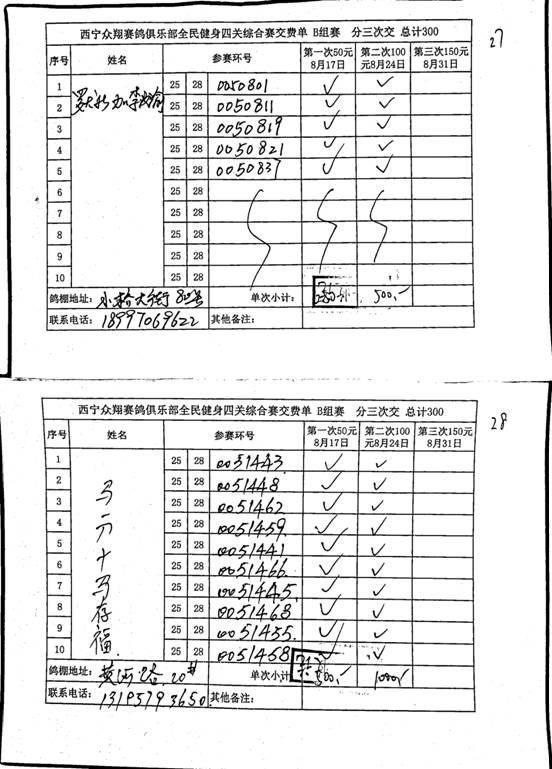 西宁众翔赛鸽俱乐部全民健身四关综合赛交费单 B组赛 分三次交 总计300
27
序号 姓名 参赛环号 第一次50元 8月17日 第二次100元8月24日 第三次150元 8月31日
1 25 28 0050801 ✓ ✓
2 25 28 0050811 ✓ ✓
3 25 28 0050819 ✓ ✓
4 25 28 0050821 ✓ ✓
5 25 28 0050837 ✓ ✓
6 25 28
7 25 28
8 25 28
9 25 28
10 25 28
鸽棚地址: 小桥大街 号 单次小计: 500,-
联系电话: 18997069622 其他备注:
西宁众翔赛鸽俱乐部全民健身四关综合赛交费单 B组赛 分三次交 总计300
28
序号 姓名 参赛环号 第一次50元 8月17日 第二次100元8月24日 第三次150元 8月31日
马 十马存福
1 25 28 0051443 ✓ ✓
2 25 28 0051448 ✓ ✓
3 25 28 0051462 ✓ ✓
4 25 28 0051459 ✓ ✓
5 25 28 0051441 ✓ ✓
6 25 28 0051466 ✓ ✓
7 25 28 0051445 ✓ ✓
8 25 28 0051468 ✓ ✓
9 25 28 0051455 ✓ ✓
10 25 28 0051458 ✓ ✓
鸽棚地址: 黄河路 20# 单次小计 500,- 1000,-
联系电话: 13195793650 其他备注: